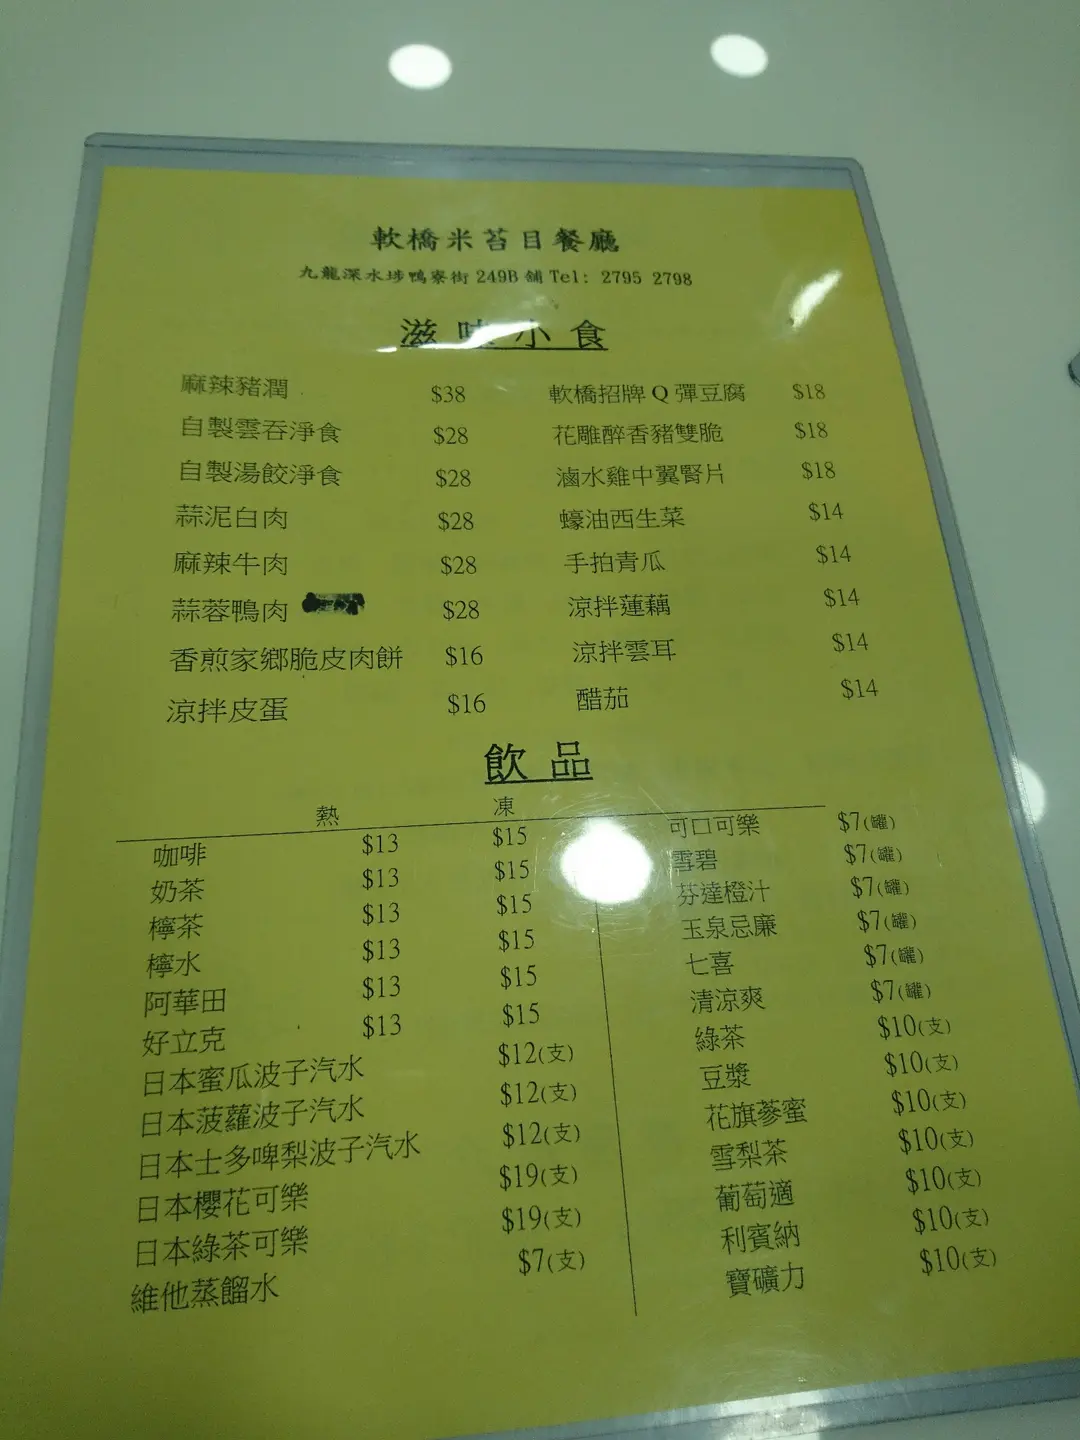 軟橋米苔目餐廳
九龍深水埗鴨寮街 249B 舖 Tel: 2795 2798
滋味小食
麻辣豬潤 $38 軟橋招牌 Q 彈豆腐 $18
自製雲吞淨食 $28 花雕醉香豬雙脆 $18
自製湯餃淨食 $28 滷水雞中翼腎片 $18
蒜泥白肉 $28 蠔油西生菜 $14
麻辣牛肉 $28 手拍青瓜 $14
蒜蓉鴨肉 $28 涼拌蓮藕 $14
香煎家鄉脆皮肉餅 $16 涼拌雲耳 $14
涼拌皮蛋 $16 醋茄 $14
飲品
熱 凍
咖啡 $13 $15 可口可樂 $7(罐)
奶茶 $13 $15 雪碧 $7(罐)
檸茶 $13 $15 芬達橙汁 $7(罐)
檸水 $13 $15 玉泉忌廉 $7(罐)
阿華田 $13 $15 七喜 $7(罐)
好立克 $13 $15 清涼爽 $7(罐)
日本蜜瓜波子汽水 $12(支) 綠茶 $10(支)
日本菠蘿波子汽水 $12(支) 豆漿 $10(支)
日本士多啤梨波子汽水 $12(支) 花旗蔘蜜 $10(支)
日本櫻花可樂 $19(支) 雪梨茶 $10(支)
日本綠茶可樂 $19(支) 葡萄適 $10(支)
維他蒸餾水 $7(支) 利賓納 $10(支)
寶礦力 $10(支)